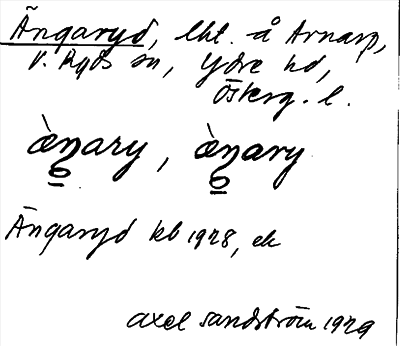 Ängaryd, lht. å Arnarp,
V. Ryds sn, Ydre hd,
Österg. l.
ὰŋary, ὰŋary
Ängaryd kb 1928, ek
Axel Sandström 1929